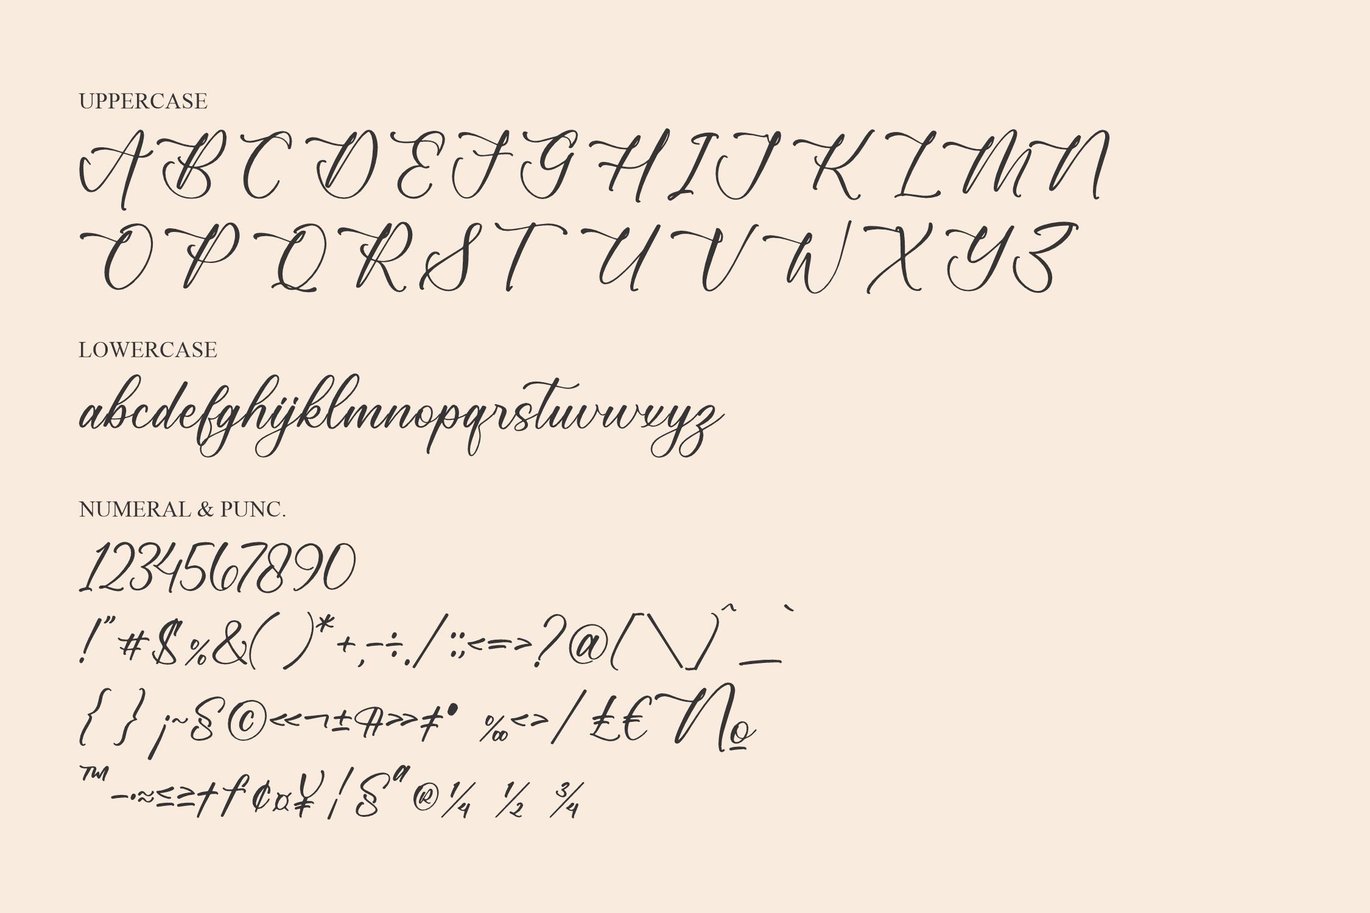 UPPERCASE
A B C D E F G H I J K L M N
O P Q R S T U V W X Y Z
LOWERCASE
abcdefghijklmnopqrstuvwxyz
NUMERAL & PUNC.
1234567890
!"#$%&( )*+,-÷./:;<=>?@[\]^_`
{ } ¡~§©«¬±¶»‡• ‰‹›/£€№
™–·≈≤≥†ƒ¢¤¥¦§ª®¼ ½ ¾